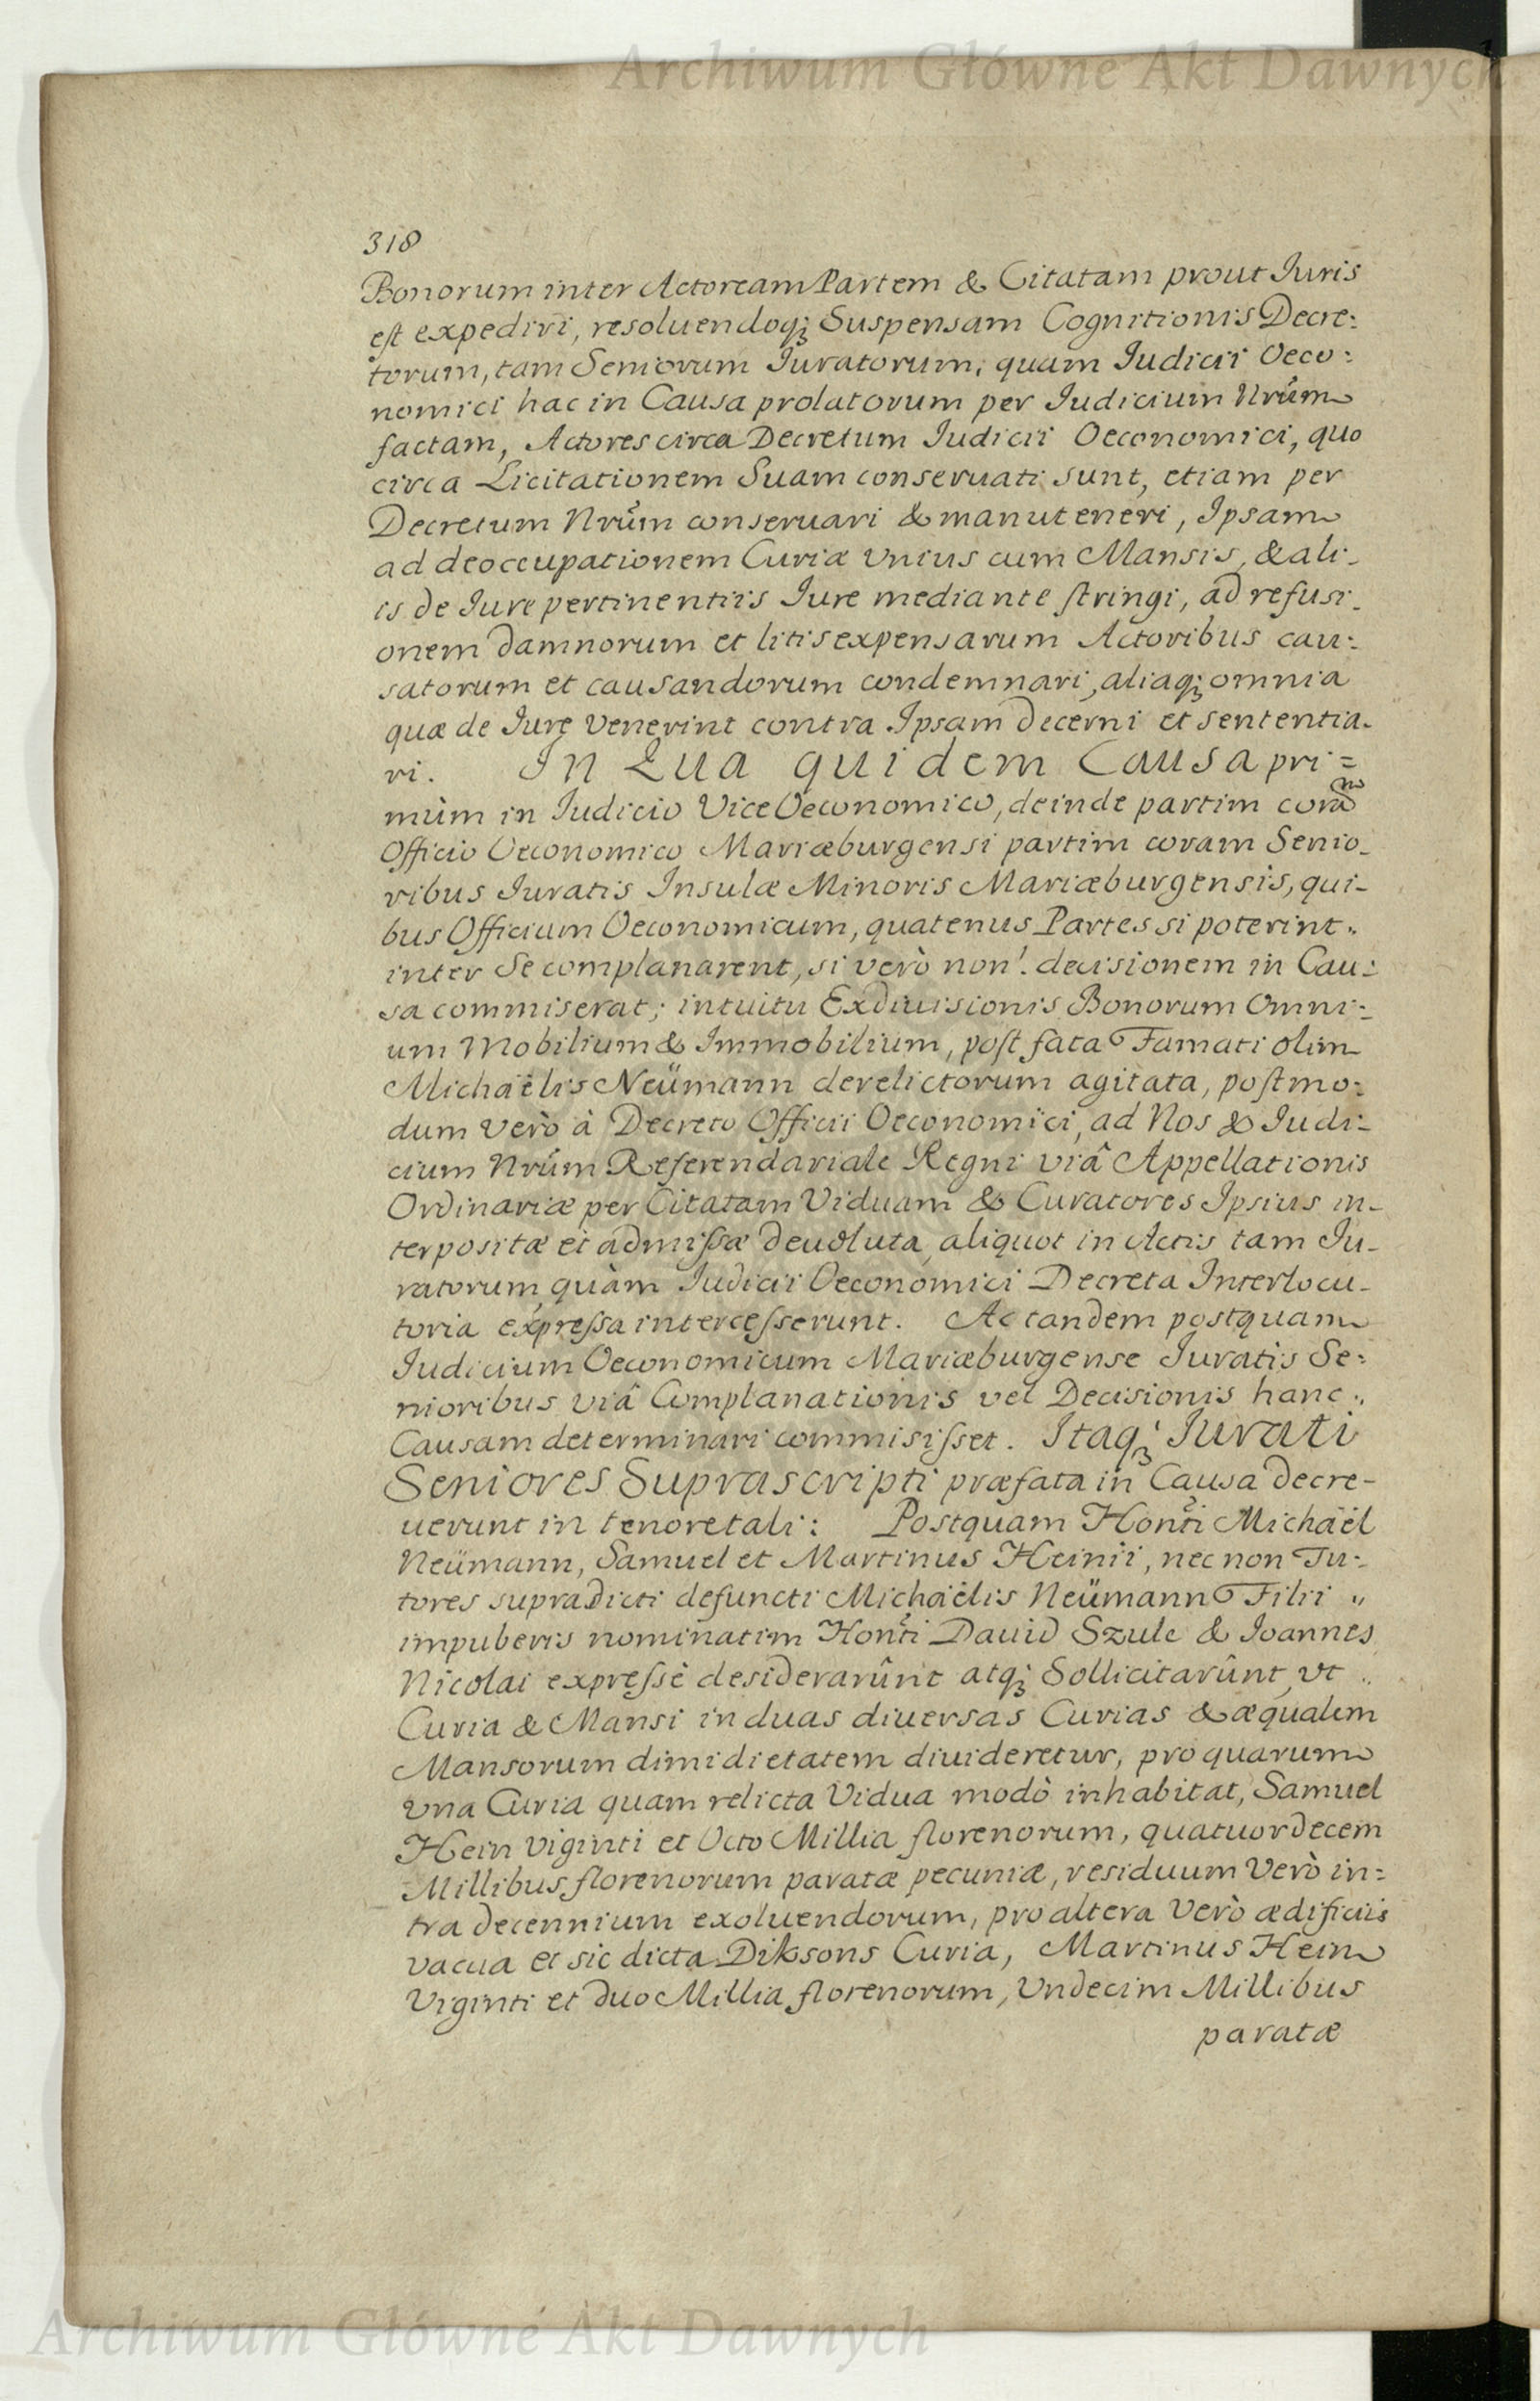 Archiwum Główne Akt Dawnych
318
Bonorum inter Actoream Partem & Citatam prout Iuris
est expediri, resoluendoq; Suspensam Cognitionis Decre:
torum, tam Seniorum Iuratorum, quam Iudicii Oeco:
nomici hac in Causa prolatorum per Iudicium Nrũm
factam, Actores circa Decretum Iudicii Oeconomici, quo
circa Licitationem Suam conseruati sunt, etiam per
Decretum Nrũm conseruari & manuteneri, Ipsam
ad deoccupationem Curiæ vnius cum Mansis, & ali-
is de Iure pertinentiis Iure mediante stringi, ad refusi-
onem damnorum et litis expensarum Actoribus cau:
satorum et causandorum condemnari, aliaq; omnia
quæ de Iure venerint contra Ipsam decerni et sententia-
ri. In Qua quidem Causa pri=
mùm in Iudicio ViceOeconomico, deinde partim corã
Officio Oeconomico Mariæburgensi partim coram Senio-
ribus Iuratis Insulæ Minoris Mariæburgensis, qui-
bus Officium Oeconomicum, quatenus Partes si poterint
inter Se complanarent, si verò non! decisionem in Cau:
sa commiserat; intuitu Exdiuisionis Bonorum Omni:
um Mobilium & Immobilium, post fata Famati olim
Michaëlis Neümann derelictorum agitata, postmo:
dum verò à Decreto Officii Oeconomici, ad Nos & Iudi:
cium Nrũm Referendariale Regni viâ Appellationis
Ordinariæ per Citatam Viduam & Curatores Ipsius in-
terpositæ et admissæ deuoluta, aliquot in Actis tam Iu-
ratorum, quàm Iudicii Oeconomici Decreta Interlocu-
toria expressa intercesserunt. Ac tandem postquam
Iudicium Oeconomicum Mariæburgense Iuratis Se:
nioribus viâ Complanationis vel Decisionis hanc
Causam determinari commisisset. Itaq; Iurati
Seniores Suprascripti præfata in Causa decre-
uerunt in tenore tali: Postquam Honti Michaël
Neümann, Samuel et Martinus Heinii, nec non Tu:
tores supradicti defuncti Michaëlis Neümann Filii
impuberis nominatim Honti Dauid Szulc & Ioannes
Nicolai expressè desiderarûnt atq; Sollicitarûnt, vt
Curia & Mansi in duas diuersas Curias & æqualem
Mansorum dimidietatem diuideretur, pro quarum
vna Curia quam relicta Vidua modò inhabitat, Samuel
Hein viginti et Octo Millia florenorum, quatuordecem
Millibus florenorum paratæ pecuniæ, residuum verò in:
tra decennium exoluendorum, pro altera verò ædificiis
vacua et sic dicta Diksons Curia, Martinus Hein
Viginti et duo Millia florenorum, Vndecim Millibus
paratæ
Archiwum Główne Akt Dawnych